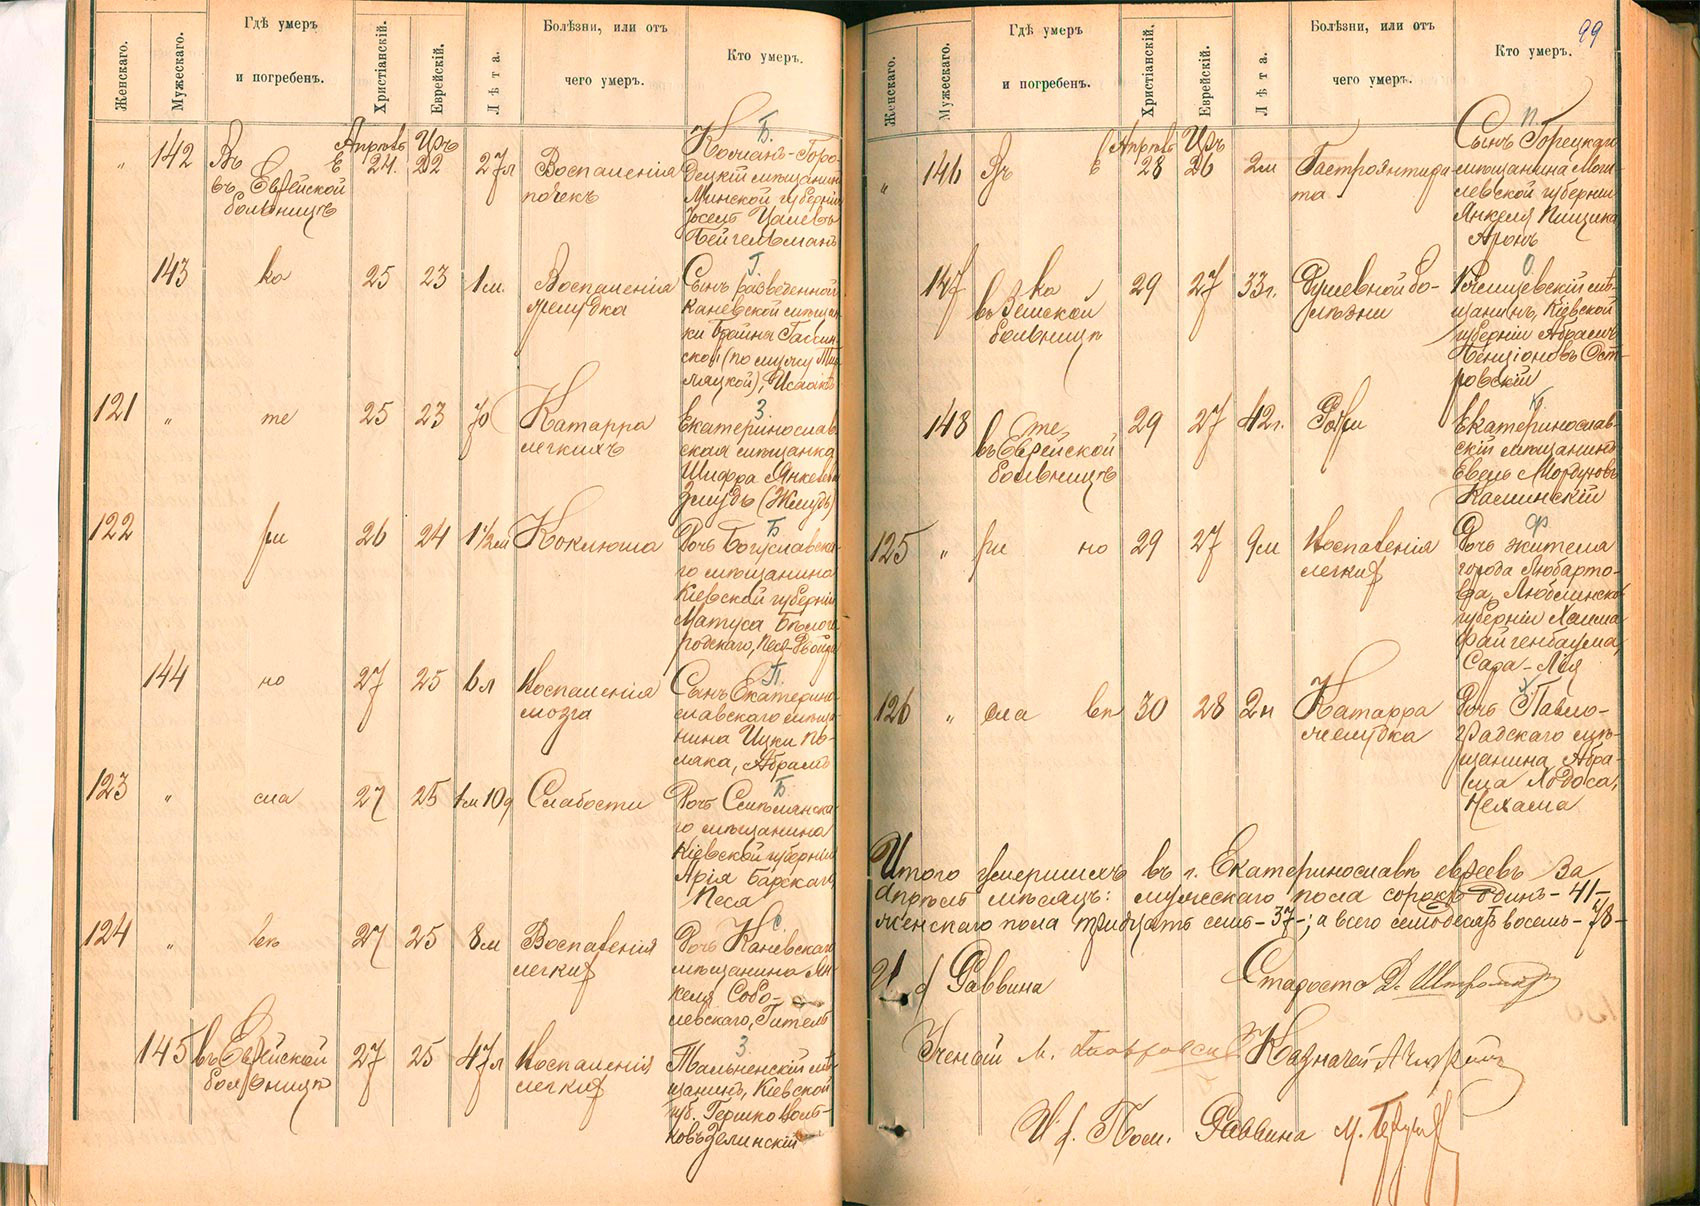 Женскаго.
Мужескаго.
Гдѣ умеръ
и погребенъ.
Христіанскій.
Еврейскій.
Лѣта.
Болѣзни, или отъ
чего умеръ.
Кто умеръ.
Б.
„ 142 Въ Е 24. 22 27л Воспаленія
въ Еврейской почекъ
больницѣ
Городецкій мѣщанинъ
Минской губерніи
Бейгельманъ
Г.
143 ка 25 23 1м. Воспаленія
желудка
Сынъ разведенной
Каневской мѣщан-
ки
(по мужу
З.
121 „ те 25 23 70 Катарра
легкихъ
Екатеринослав-
ская мѣщанка
Шифра Янкелева
Змудъ (Жмудь)
Б
122 ри 26 24 1 1/2м Коклюша
Дочь Богуславска-
го мѣщанина
Кіевской губерніи
Матуса Бѣлого-
родскаго,
П.
144 но 27 25 6л Воспаленія
мозга
Сынъ Екатерино-
славскаго мѣща-
нина Ицки По-
ляка, Абрамъ
Б
123 „ сла 27 25 1м 10д Слабости
Дочь Смѣлянска-
го мѣщанина
Кіевской губерніи
Арія Барскаго
Песя
С
124 „ вѣ 27 25 8м Воспаленія
легких
Дочь Каневскаго
мѣщанина Ян-
келя Собо-
левскаго, Гитель
З
145 въ Еврейской 27 25 47л Воспаленія
больницѣ легких
Тальненскій мѣ-
щанинъ, Кіевской
губ. Гершко Воль-
ковъ Зелинскій
99
Женскаго.
Мужескаго.
Гдѣ умеръ
и погребенъ.
Христіанскій.
Еврейскій.
Лѣта.
Болѣзни, или отъ
чего умеръ.
Кто умеръ.
П.
„ 146 28 26 2м Гастроэнтери
та
Сынъ Горецкаго
мѣщанина Моги-
левской губерніи
Янкеля Пищика
Аронъ
О
147 ка 29 27 33г. Душевной бо-
въ Земской лѣзни
больницѣ
мѣ-
щанинъ, Кіевской
губерніи Абрамъ
Бенціоновъ Ост-
ровскій
К.
148 те 29 27 42г.
въ Еврейской
больницѣ
Екатеринослав-
скій мѣщанинъ
Евель Мордуховъ
Каминскій
Ф.
125 „ ри но 29 27 9м Воспаленія
легких
Дочь жителя
города Любарто-
ва, Люблинской
губерніи Хаима
Файгенбаума,
Сара-Лея
Х
126 „ сла вѣ 30 28 2н Катарра
желудка
Дочь Павло-
градскаго мѣ-
щанина Абра-
ма Ходоса,
Нехама
Итого умершихъ въ г. Екатеринославѣ евреевъ за
апрѣль мѣсяцъ: мужескаго пола сорокъ одинъ - 41 -
женскаго пола тридцать семь - 37 -; а всего семьдесятъ восемь - 78 -
И д Раввина Староста Д.
Ученый М. Казначей
И. д. Пом. Раввина М.